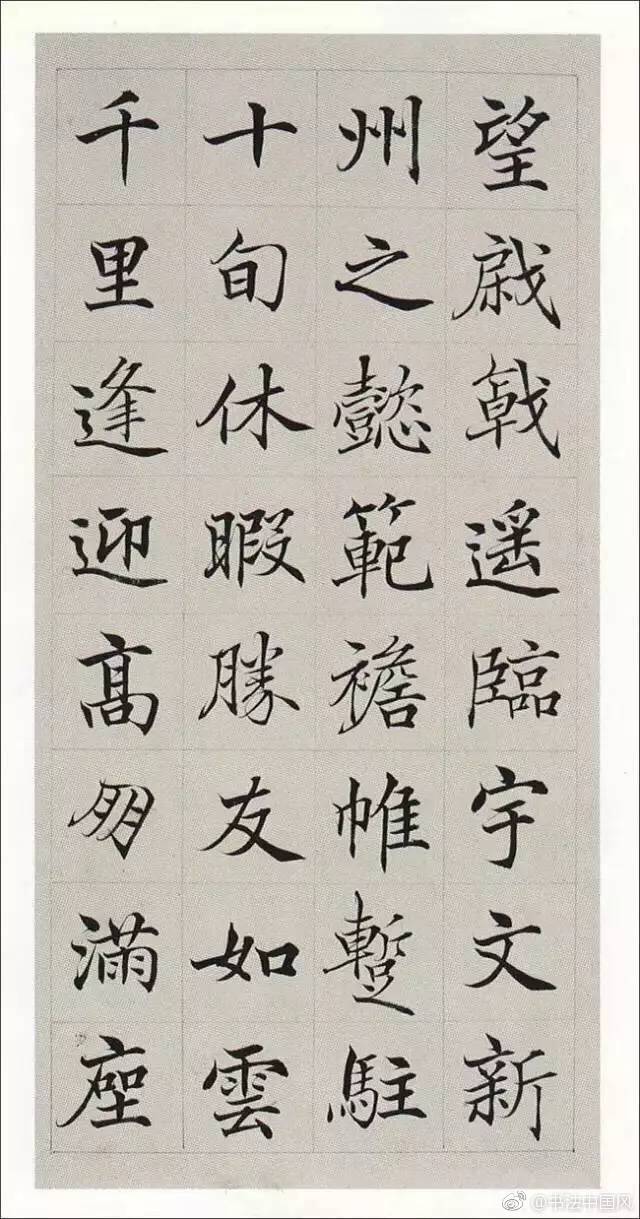 望戚戟遥臨宇文新
州之懿範襜帷蹔駐
十旬休暇勝友如雲
千里逢迎髙朋滿座
@书法中国风